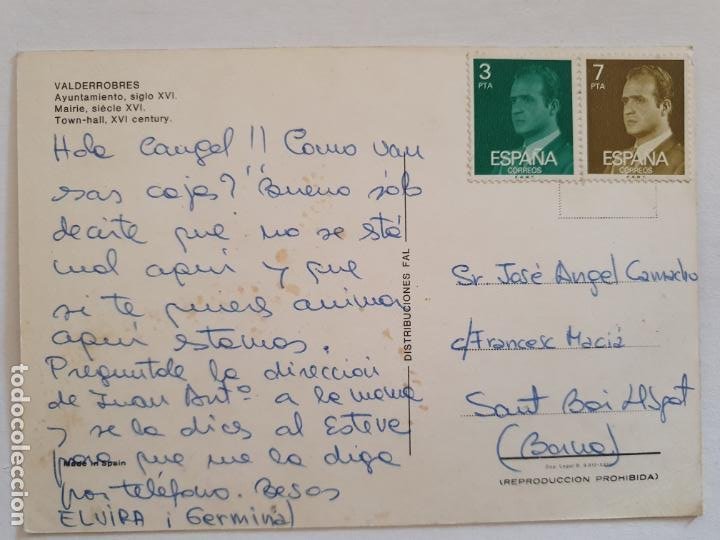 VALDERROBRES
Ayuntamiento, siglo XVI.
Mairie, siècle XVI.
Town-hall, XVI century.
3
PTA
ESPAÑA
CORREOS
7
PTA
ESPAÑA
CORREOS
Hola Cangel!! Como van
esas cajas? "Bueno sólo
decirte que no se está
mal aquí y que
si te quieres animar
aquí estamos.
Preguntale la direccion
de Juan Antº a la mama
y se la dices al Esteve
para que me la diga
por teléfono. Besos
ELVIRA i Germinal
Made in Spain
DISTRIBUCIONES FAL
Sr José Angel Camacho
c/Francesc Macià
Sant Boi Llspat
(Barna)
(REPRODUCCION PROHIBIDA)
todocoleccion